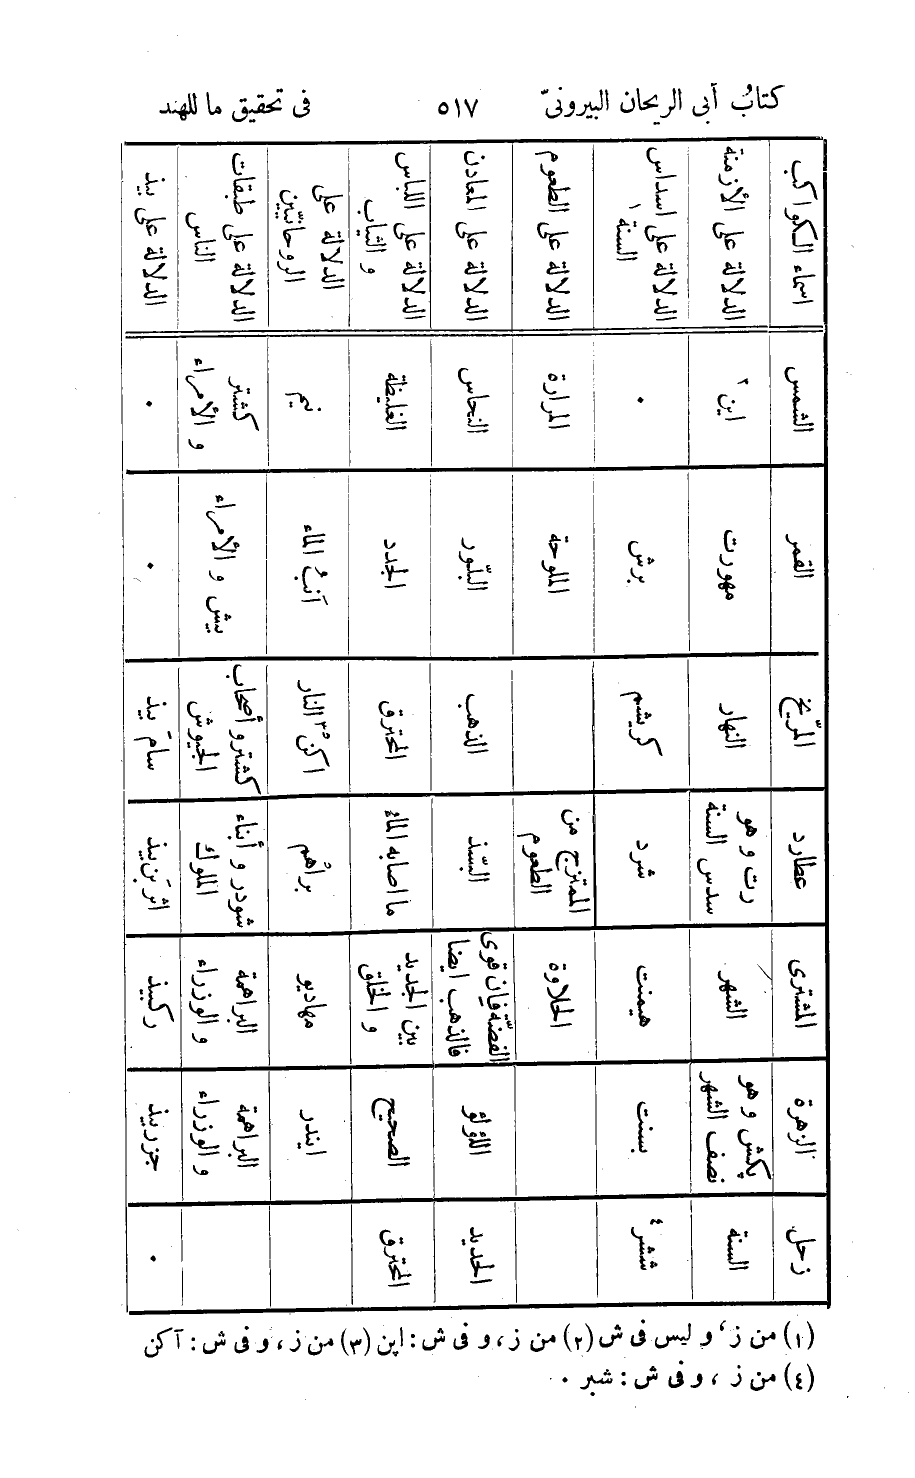 كتابُ أبى الريحان البيرونىّ ٥١٧ فى تحقيق ما للهند
اسماء الكواكب
الدلالة على الأزمنة
الدلالة على اسداس
السنة ١
الدلالة على الطعوم
الدلالة على المعادن
الدلالة على اللباس
و الثياب
الدلالة على
الروحانيّين
الدلالة على طبقات
الناس
الدلالة على بيذ
الشمس
اين ٢
٠
المرارة
النحاس
الغليظة
نيم
كشتر
و الأمراء
٠
القمر
مهورت
برش
الملوحة
البلّور
الجدد
آنبُ الماء
بيش و الأمراء
٠
المرّيخ
النهار
كريشم
الذهب
المحترق
اكن ٣ النار
كشتر و أصحاب
الجيوش
سامَ بيذ
عطارد
رت و هو
سدس السنة
شرد
الممتزج من
الطعوم
البسّذ
ما اصابه الماءُ
براهُم
شودر و أبناء
الملوك
اثربَن بيذ
المشترى
الشهر
هيمنت
الحلاوة
الفضّة فان قوى
فالذهب ايضا
بين الجديد
و الخلق
مهاديو
البراهمة
و الوزراء
ركبيذ
الزهرة
پكش و هو
نصف الشهر
بسنت
اللؤلؤ
الصحيح
ايندر
البراهمة
و الوزراء
جزربيذ
زحل
السنة
ششر ٤
الحديد
المحترق
٠
(١) من ز، و ليس فى ش (٢) من ز، و فى ش : اپن (٣) من ز، و فى ش : آكن
(٤) من ز ، و فى ش : شبر ٠